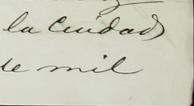 la Ciudad
de mil